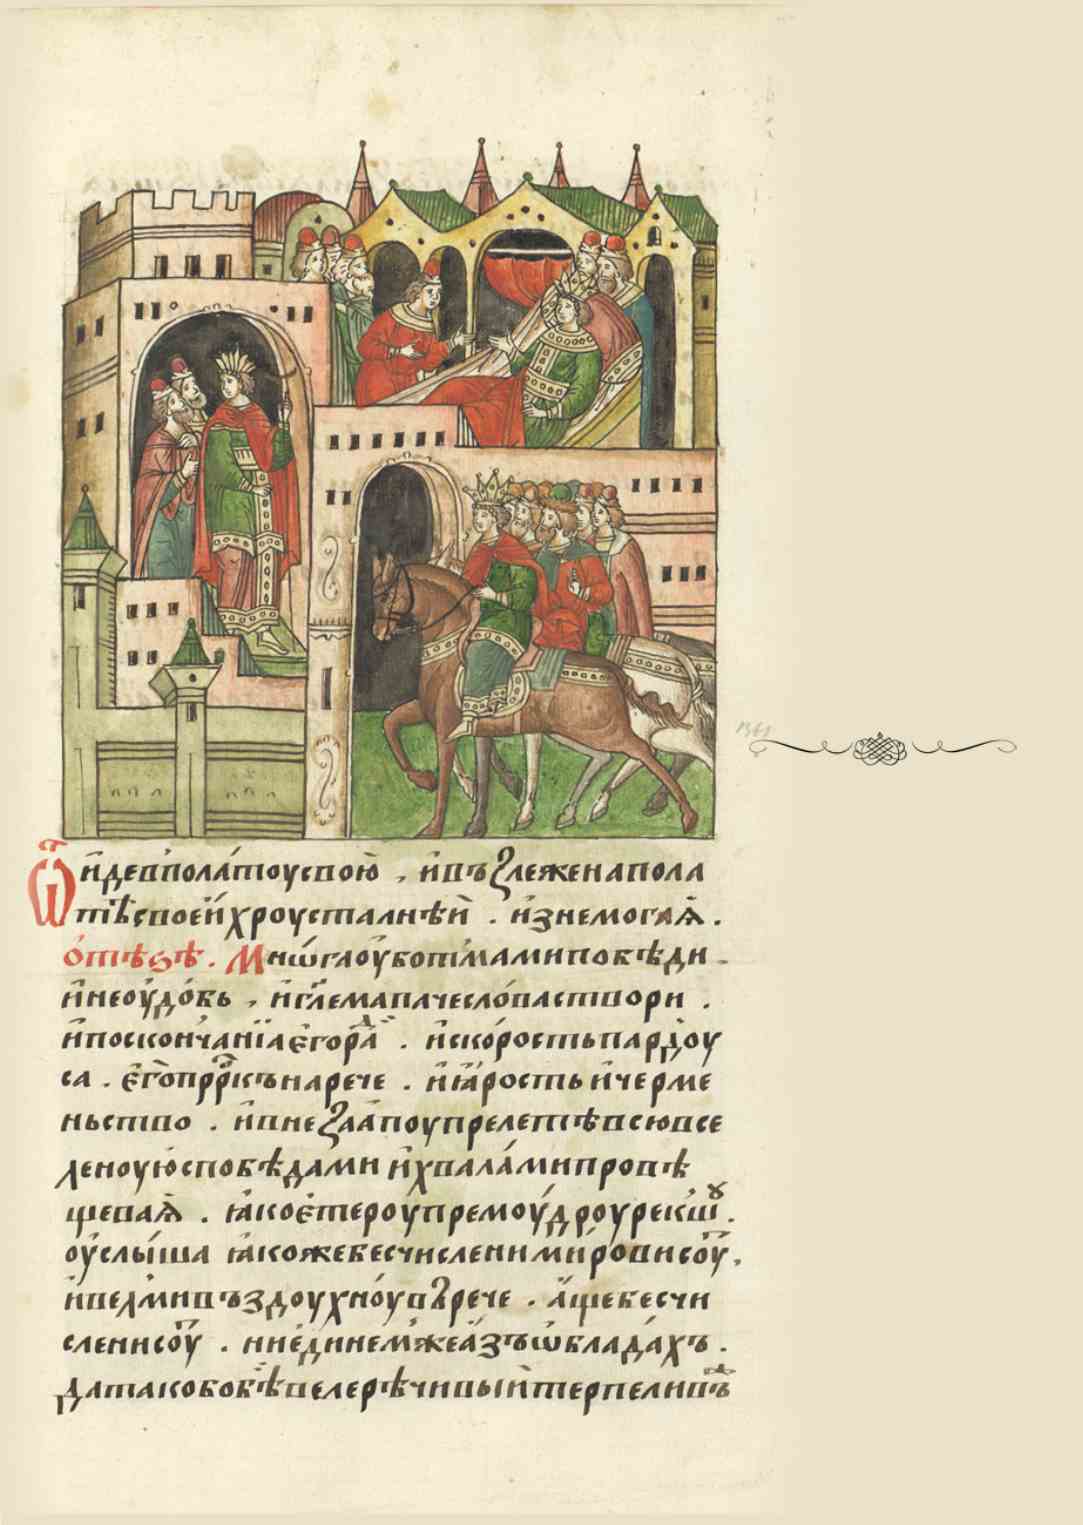 Ѿи́де в̾ пола́тоу свою̀ , и҆ въꙁлеже на пола
тѣ свое́и хроуста́лнѣи . и҆знемога́ѧ .
о҆ тѣзѣ . Мнѡ́га оу҆бо т̾мами побѣди .
и҆ не оу҆до́бь , и҆ гл҃ема паче сло́ва створи .
и҆ по сконча́нїа є҆го ра́д . и҆ ско́рость пардоу
са . є҆го̀ прⷪ҇ркъ нарече . и҆ ꙗ҆́рость и҆ черме
ньство . и҆ внеꙁаа́поу прелетѣ всю все
леноую с побѣдами и҆ хвала́ми провѣ
щеваѧ̀ . ꙗ҆ко є҆́теро у премоу́дроу рекшꙋ .
оу҆слы́ша ꙗ҆коже бесчислени ми́рови соу́т .
и҆ велми въздоухноу́въ рече . а҆́ще бесчи
слени соу́т . ни е҆ди́нем̾же а҆́зъ ѡ҆блада́хъ .
да тако бо бѣ велерѣчивыи҆ терпеливъ
1361